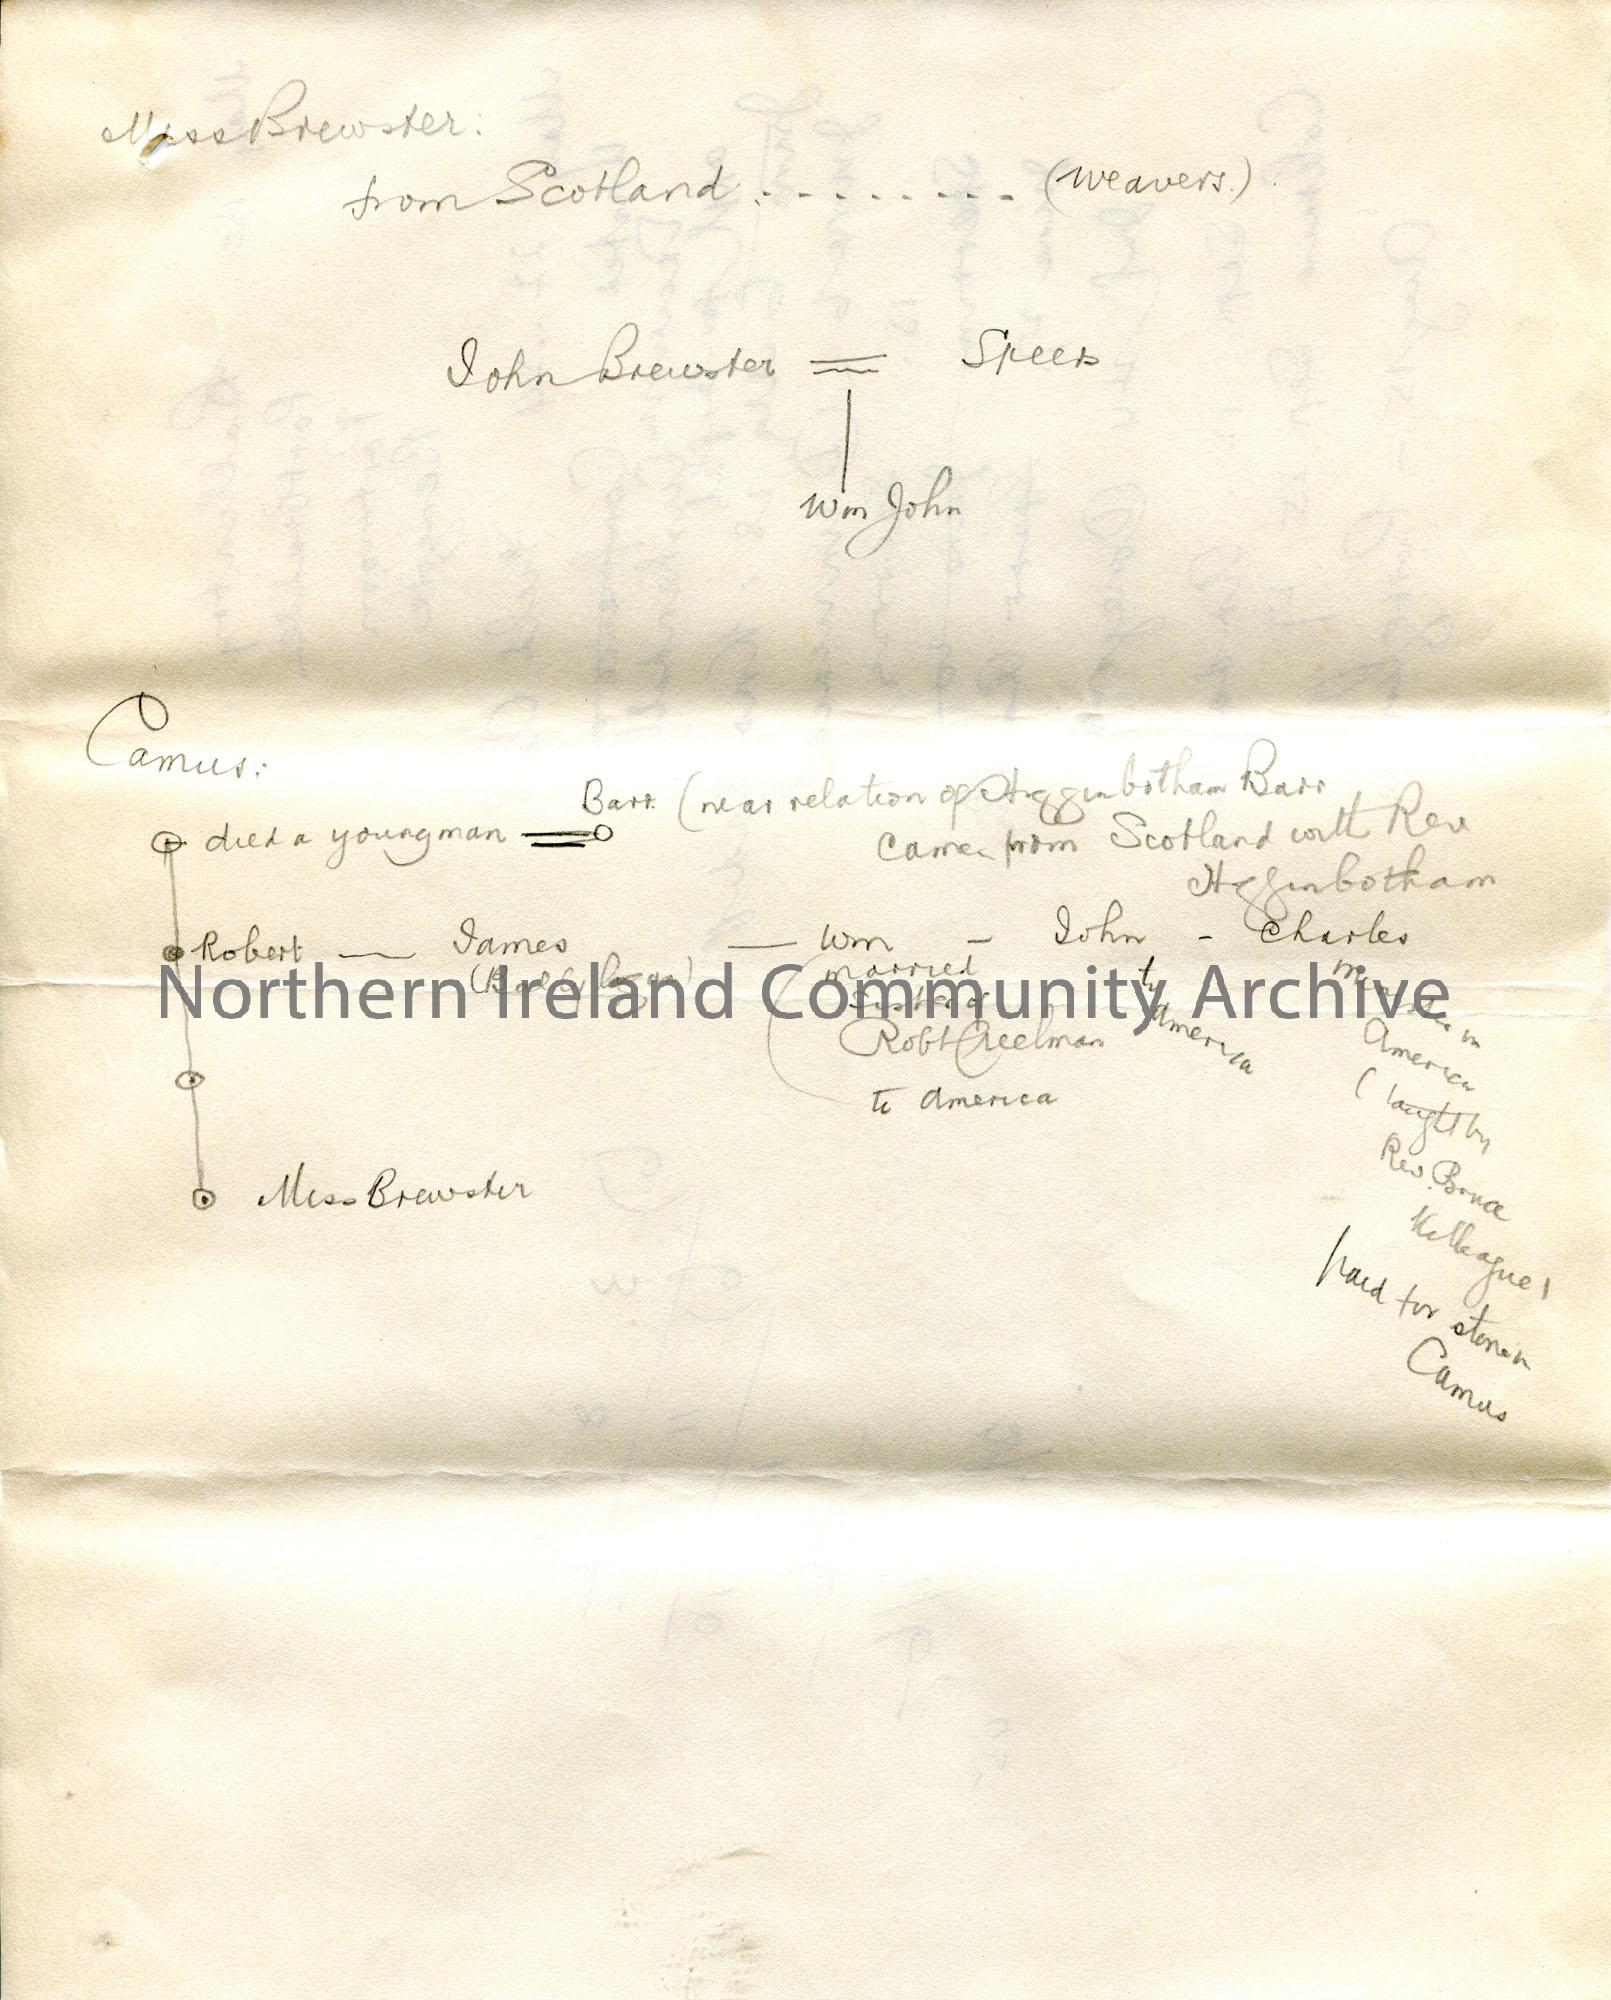 Miss Brewster:
from Scotland . - - - - - - - - (weavers.)
John Brewster = Speers
Wm John
Camus:
Barr (near relation of Higginbotham Barr
died a young man =
came from Scotland with Rev
Higginbotham
Robert — James — Wm - John - Charles
married
sister of
Robt Creelman
to America
to America
minister in
America
(taught by
Rev. Bruce
Killeague)
paid for stone in
Camus
Miss Brewster
Northern Ireland Community Archive